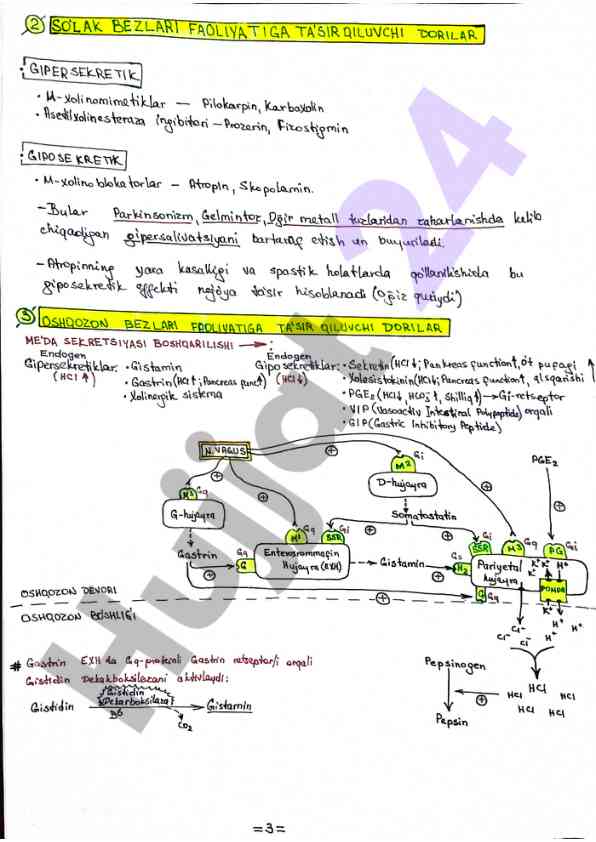 ② SO'LAK BEZLARI FAOLIYATIGA TA'SIR QILUVCHI DORILAR
• GIPERSEKRETIK
• M-xolinomimetiklar — Pilokarpin, Karbaxolin
• Asetilxolinesteraza ingibitori – Prozerin, Fizostigmin
• GIPOSEKRETIK
• M-xolinoblokatorlar – Atropin, Skopolamin.
– Bular Parkinsonizm, Gelmintoz, Og'ir metall tuzlaridan zaharlanishda kelib
chiqadigan gipersalivatsiyani bartaraf etish un buyuriladi.
– Atropinning yara kasalligi va spastik holatlarda qo'llanilishida bu
giposekretik effekti nojo'ya ta'sir hisoblanadi (Og'iz quriydi)
③ OSHQOZON BEZLARI FAOLIYATIGA TA'SIR QILUVCHI DORILAR
ME'DA SEKRETSIYASI BOSHQARILISHI → :
Endogen
Gipersekretiklar: • Gistamin
(HCl ↑) • Gastrin (HCl ↑; Pancreas funct ↑)
• Xolinergik sistema
Endogen
Giposekretiklar: • Sekretin (HCl ↓; Pankreas function ↑, o't pufagi ↑
(HCl ↓) • Xolesistokinin (HCl ↓; Pancreas function ↑, qisqarishi
• PGE₂ (HCl ↓, HCO₃⁻ ↑, Shilliq ↑) → Gi-retseptor
• VIP (Vasoactiv Intestinal Polypeptide) orqali
• GIP (Gastric Inhibitory Peptide)
N.VAGUS
M3 Gq
G-hujayra
Gastrin
M1 Gq
SSR Gi
Gq G
Enterosrommagin
Hujayra (EXH)
M2 Gi
D-hujayra
Somatostatin
Gistamin
Gs H₂
Gi SSR
M3 Gq
PGE₂
PG Gi
Pariyetal
hujayra
K⁺ H⁺
K⁺ H⁺
POMPA
G Gq
K⁺ H⁺
OSHQOZON DEVORI
OSHQOZON BO'SHLIG'I
Cl⁻ H⁺ H⁺
Cl⁻ Cl⁻ H⁺ H⁺
# Gastrin EXH da Gq-proteinli Gastrin retseptorli orqali
Gistidin Dekarboksilazani aktivlaydi:
Gistidin
Gistidin
Dekarboksilaza
B6
CO₂
Gistamin
Pepsinogen
Pepsin
HCl HCl HCl
HCl HCl HCl
Hujjat 24
=3=